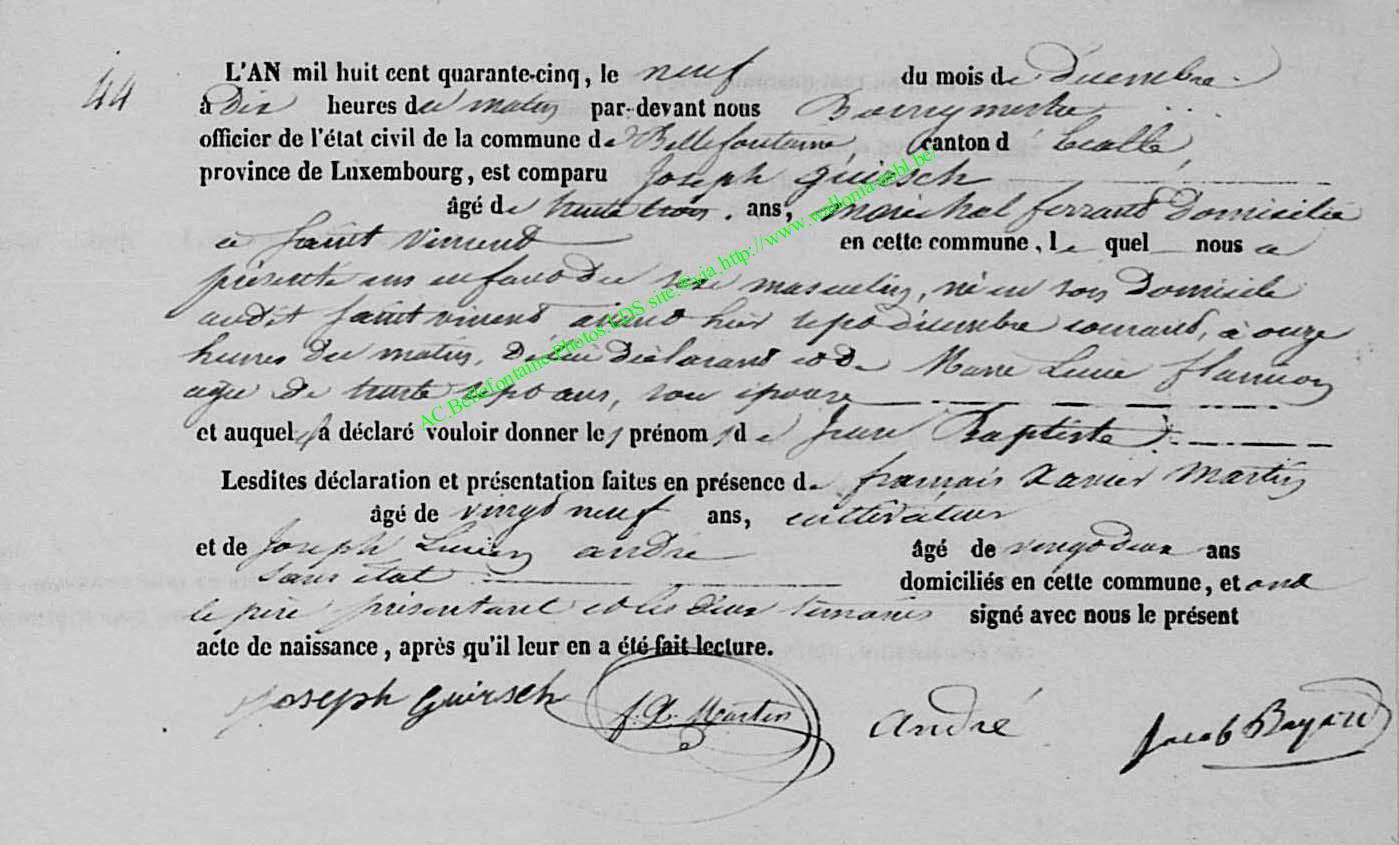 44
L'AN mil huit cent quarante-cinq, le neuf du mois de Décembre
à Dix heures du matin par-devant nous Bourgmestre
officier de l'état civil de la commune de Bellefontaine, canton d' Etalle,
province de Luxembourg, est comparu Joseph Guirsch
âgé de trente trois ans, maréchal ferrant Domicilié
à Saint Vincent en cette commune, lequel nous a
présenté un enfant du sexe masculin, né en son Domicile
audit Saint Vincent, avant hier sept décembre courant, à onze
heures du matin, De lui déclarant et de Marie Lucie
agée De trente sept ans, son épouse
et auquel il a déclaré vouloir donner les prénoms de Jean Baptiste
Lesdites déclaration et présentation faites en présence de françois Xavier Martin
âgé de vingt neuf ans, cultivateur
et de Joseph Lucien andré âgé de vingt deux ans
sans état domiciliés en cette commune, et ont
le père présentant et les deux témoins signé avec nous le présent
acte de naissance, après qu'il leur en a été fait lecture.
Joseph Guirsch f. X. Martin André Jacob Bayard
AC.Bellefontaine.Photos.EDS site @via http://www.wallonia-asbl.be/